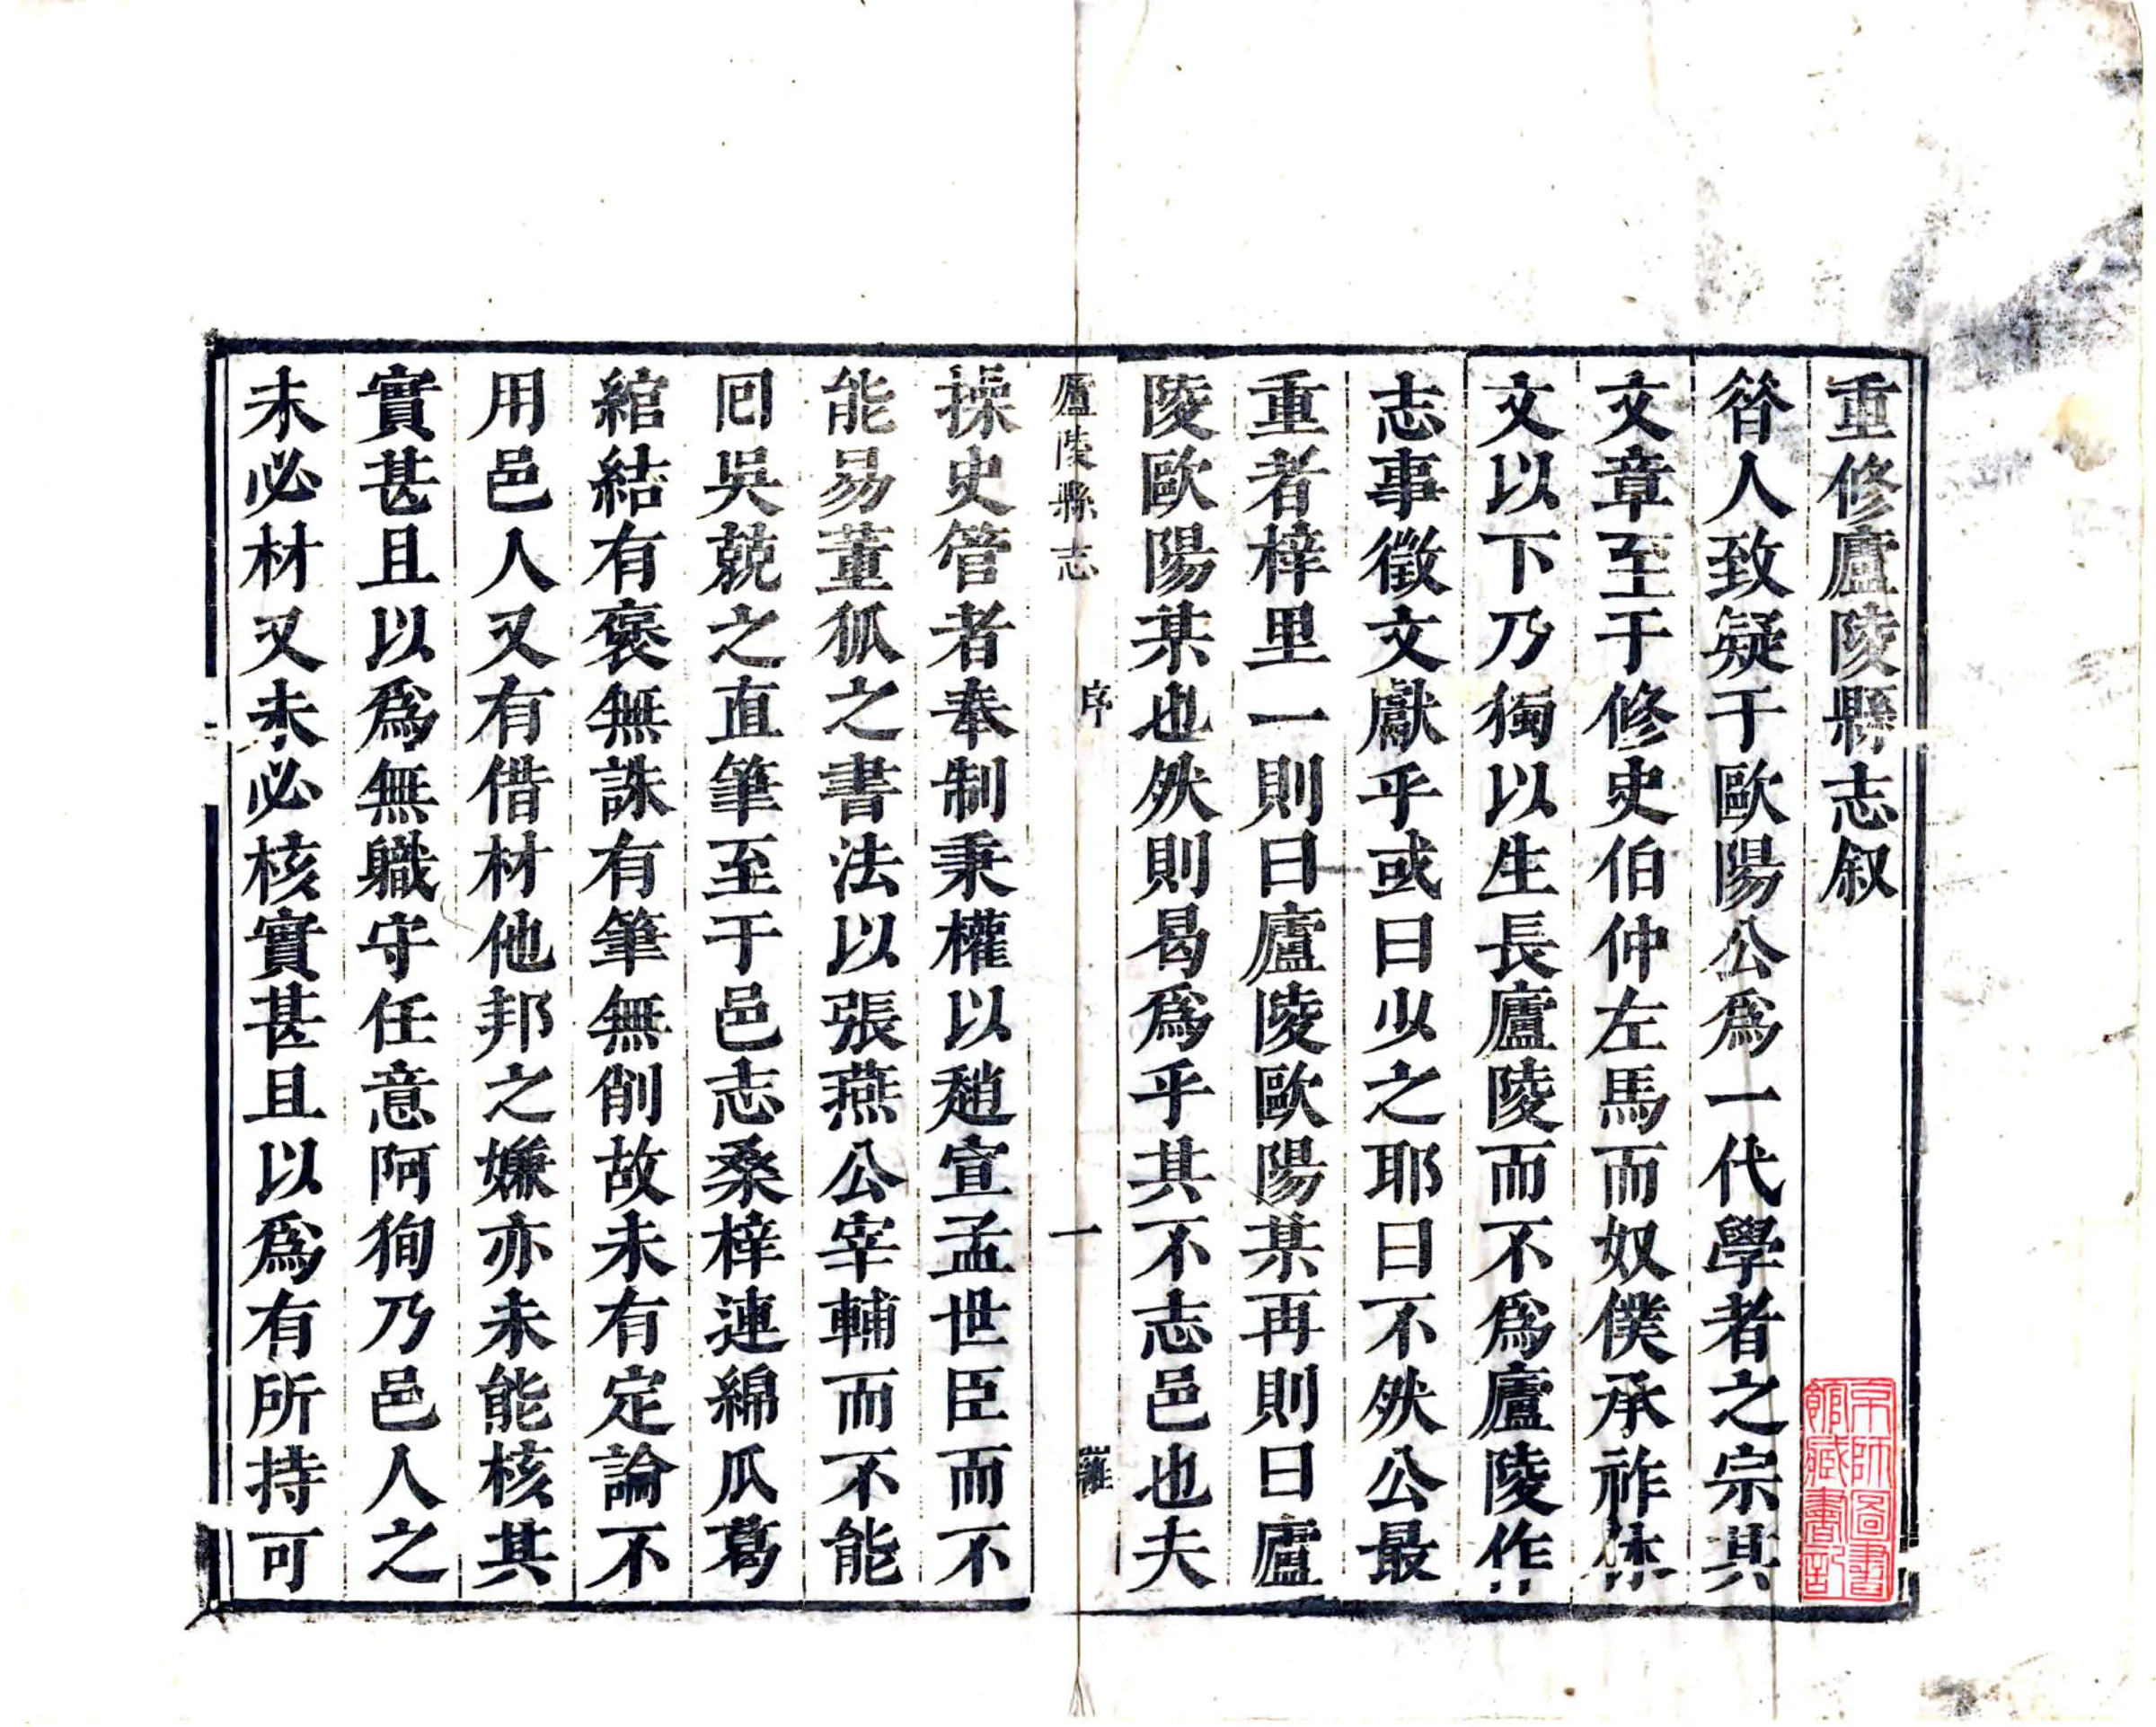 重修廬陵縣志叙
昝人致疑于歐陽公爲一代學者之宗其
文章至于修史伯仲左馬而奴僕承祚休
文以下乃獨以生長廬陵而不爲廬陵作
志事徵文獻乎或曰少之耶曰不然公最
重者梓里一則曰廬陵歐陽某再則曰廬
陵歐陽某也然則曷爲乎其不志邑也夫
廬陵縣志 序 一
操史管者奉制秉權以趙宣孟世臣而不
能易董狐之書法以張燕公宰輔而不能
回吳兢之直筆至于邑志桑梓連綿瓜葛
綰結有褒無誅有筆無削故未有定論不
用邑人又有借材他邦之嫌亦未能核其
實甚且以爲無職守任意阿狥乃邑人之
未必材又未必核實甚且以爲有所持可
京師圖書
館藏書記